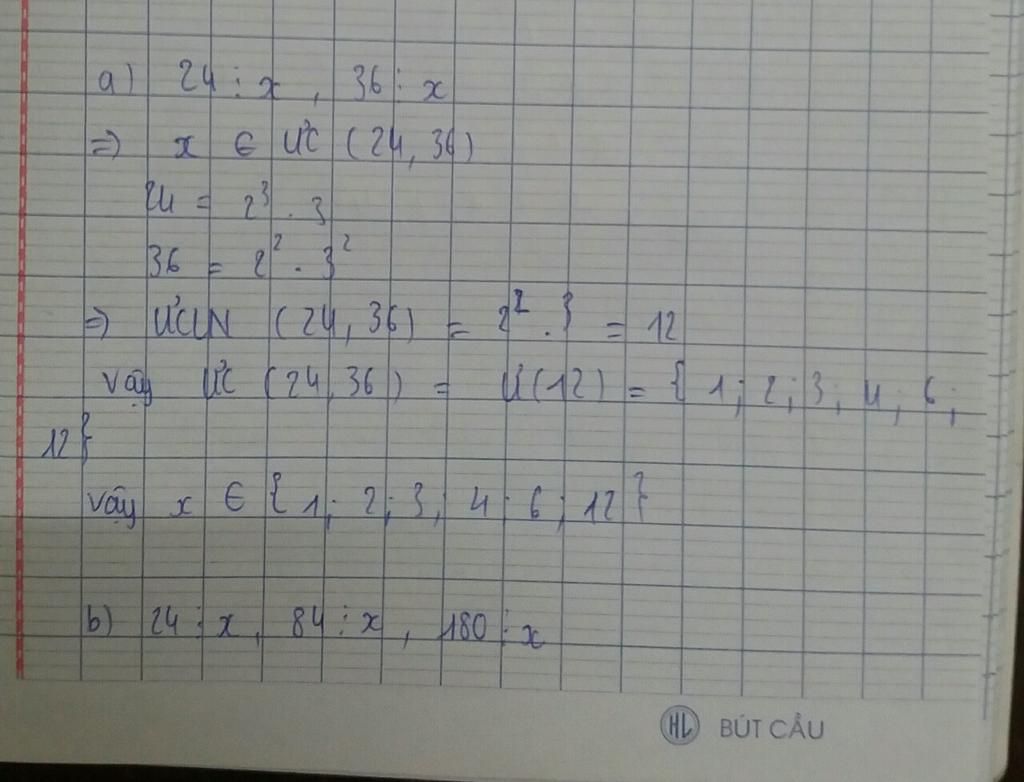 a) 24 ⋮ x , 36 ⋮ x
=> x ∈ ƯC (24, 36)
24 = 2³ . 3
36 = 2² . 3²
=> ƯCLN (24, 36) = 2² . 3 = 12
vậy ƯC (24, 36) = Ư(12) = { 1 ; 2 ; 3 ; 4 ; 6 ;
12 }
vậy x ∈ { 1 ; 2 ; 3 ; 4 ; 6 ; 12 }
b) 24 ⋮ x , 84 ⋮ x , 180 ⋮ x
HL BÚT CẦU